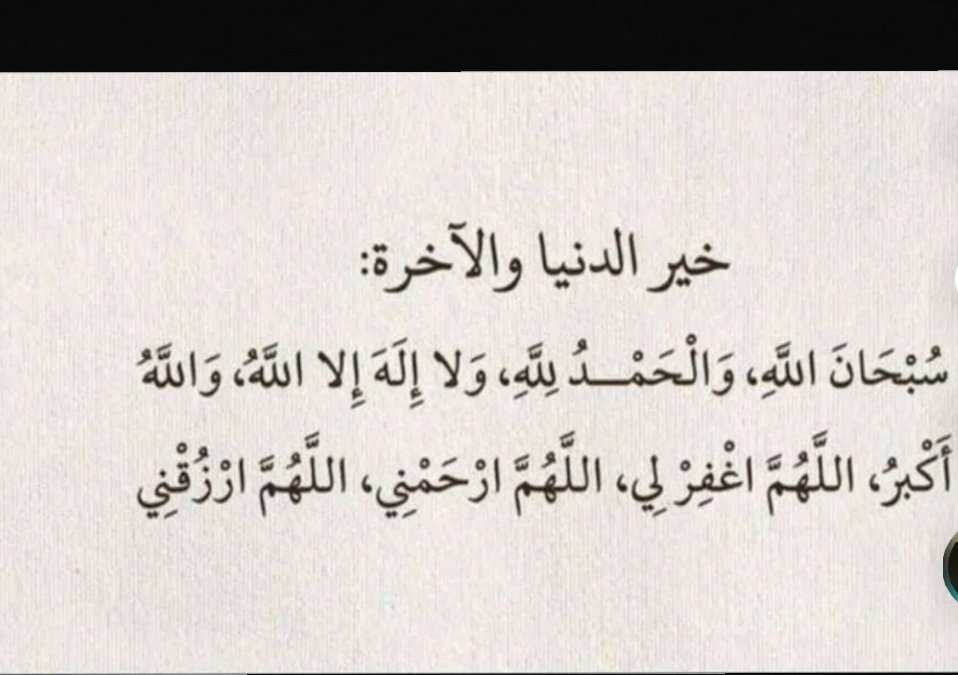 خير الدنيا والآخرة:
سُبْحَانَ اللَّهِ، وَالْحَمْـــدُ لِلَّهِ، وَلا إِلَهَ إِلا اللَّهُ، وَاللَّهُ
أَكْبرُ، اللَّهُمَّ اغْفِرْ لِي، اللَّهُمَّ ارْحَمْنِي، اللَّهُمَّ ارْزُقْنِي